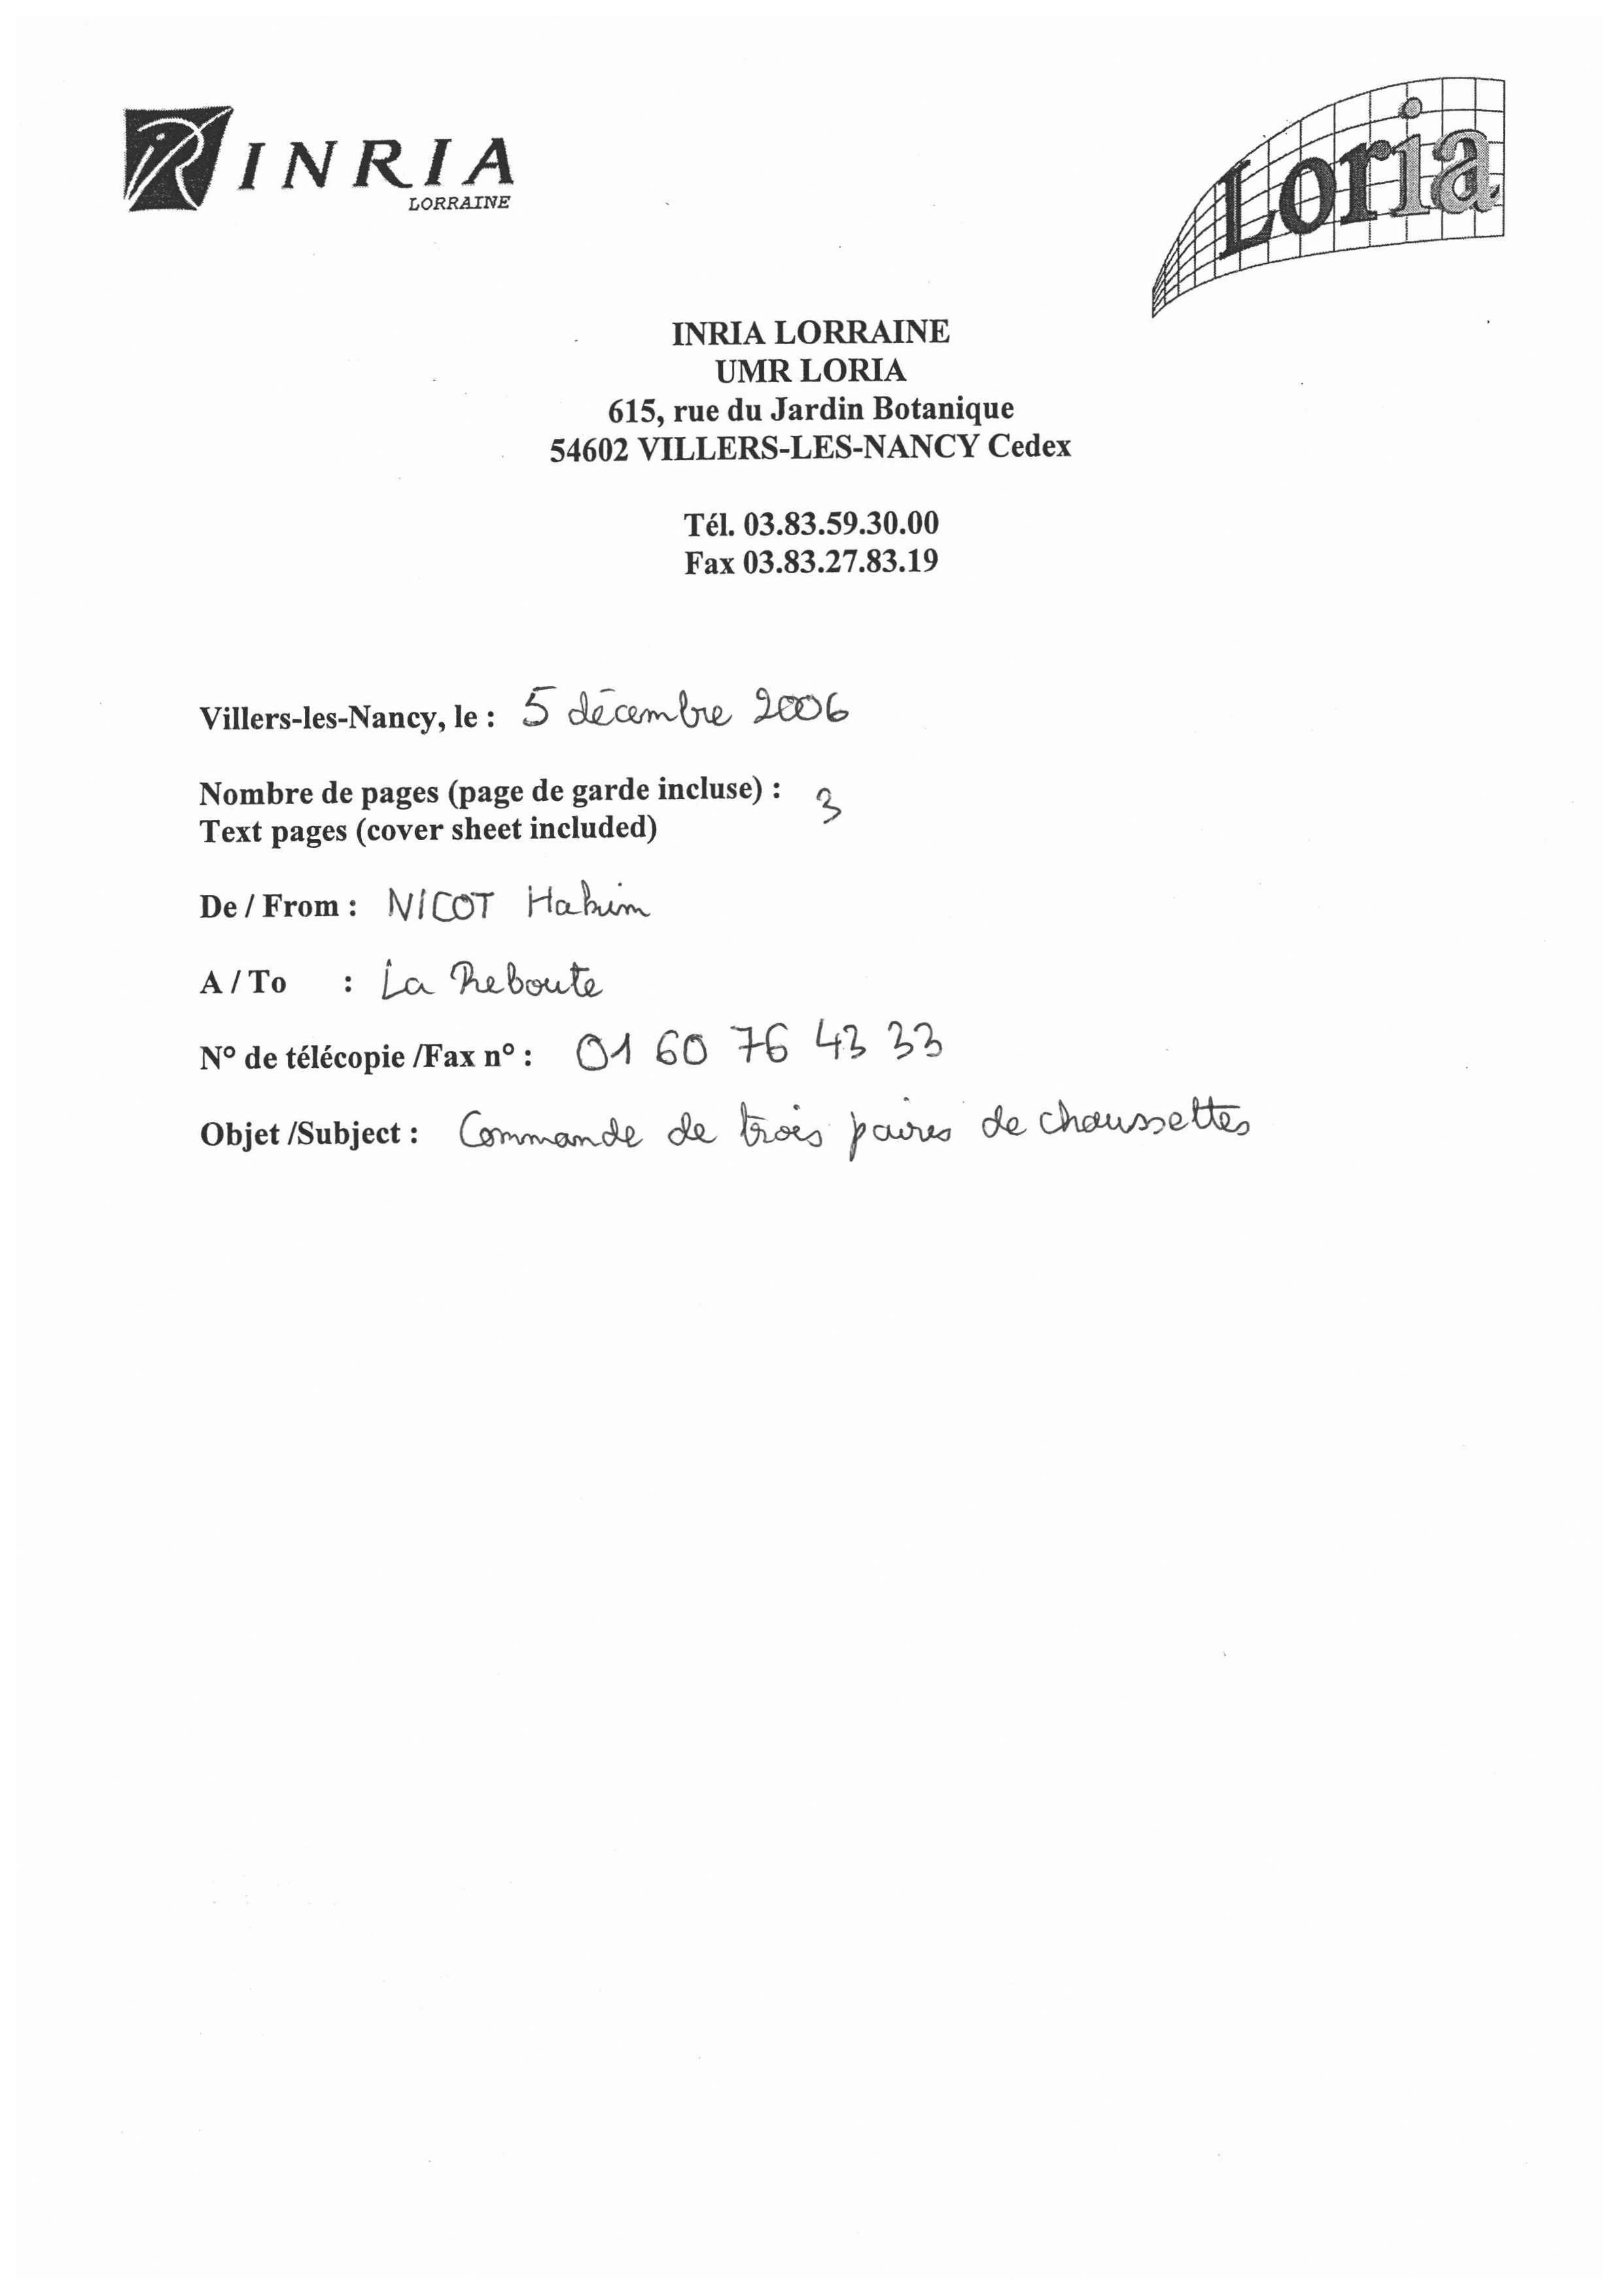 INRIA
LORRAINE
Loria
INRIA LORRAINE
UMR LORIA
615, rue du Jardin Botanique
54602 VILLERS-LES-NANCY Cedex
Tél. 03.83.59.30.00
Fax 03.83.27.83.19
Villers-les-Nancy, le : 5 décembre 2006
Nombre de pages (page de garde incluse) : 3
Text pages (cover sheet included)
De / From : NICOT Hakim
A / To : La Reboute
N° de télécopie /Fax n° : 01 60 76 43 33
Objet /Subject : Commande de trois paires de chaussettes